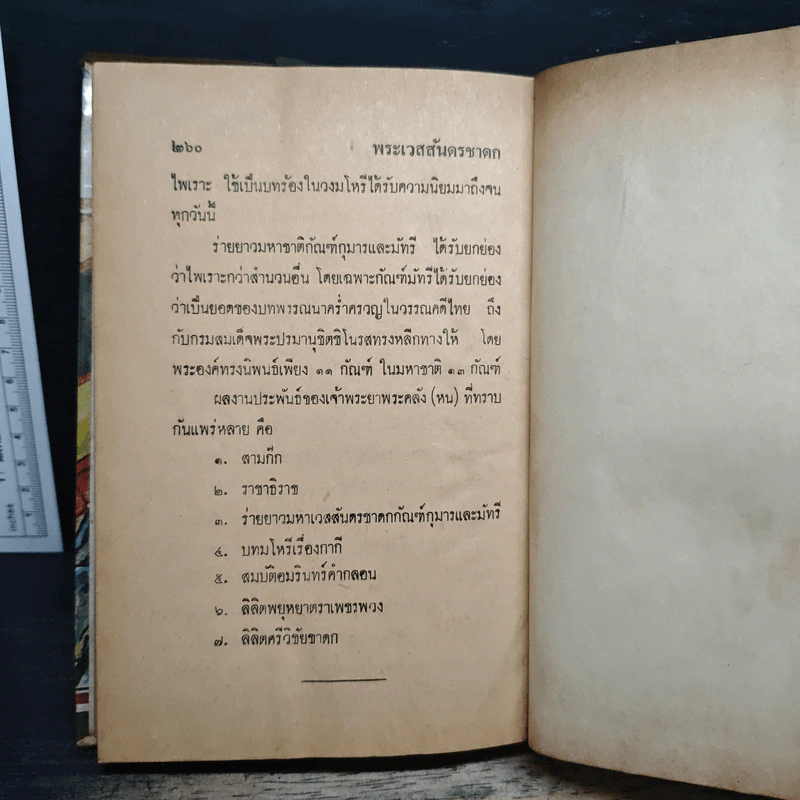 ๒๖๐ พระเวสสันดรชาดก
ไพเราะ ใช้เป็นบทร้องในวงมโหรีได้รับความนิยมมาถึงจน
ทุกวันนี้
ร่ายยาวมหาชาติกัณฑ์กุมารและมัทรี ได้รับยกย่อง
ว่าไพเราะกว่าสำนวนอื่น โดยเฉพาะกัณฑ์มัทรีได้รับยกย่อง
ว่าเป็นยอดของบทพรรณนาคร่ำครวญในวรรณคดีไทย ถึง
กับกรมสมเด็จพระปรมานุชิตชิโนรสทรงหลีกทางให้ โดย
พระองค์ทรงนิพนธ์เพียง ๑๑ กัณฑ์ ในมหาชาติ ๑๓ กัณฑ์
ผลงานประพันธ์ของเจ้าพระยาพระคลัง (หน) ที่ทราบ
กันแพร่หลาย คือ
๑. สามก๊ก
๒. ราชาธิราช
๓. ร่ายยาวมหาเวสสันดรชาดกกัณฑ์กุมารและมัทรี
๔. บทมโหรีเรื่องกากี
๕. สมบัติอมรินทร์คำกลอน
๖. ลิลิตพยุหยาตราเพชรพวง
๗. ลิลิตศรีวิชัยชาดก
inches